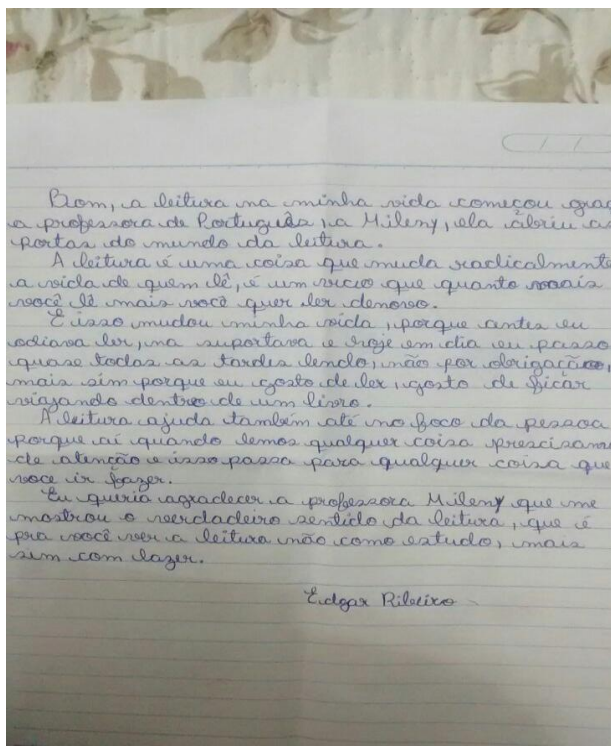 Bom, a leitura na minha vida começou graç
a professora de Português, a Mileny, ela abriu as
portas do mundo da leitura.
A leitura é uma coisa que muda radicalmente
a vida de quem lê, é um vício que quanto mais
você lê mais você quer ler denovo.
E isso mudou minha vida, porque antes eu
odiava ler, na suportava e hoje em dia eu passo
quase todas as tardes lendo, não por obrigação,
mais sim porque eu gosto de ler, gosto de ficar
viajando dentro de um livro.
A leitura ajuda também até no foco da pessoa
porque aí quando lemos qualquer coisa prescisam
de atenção e isso passa para qualquer coisa que
voce ir fazer.
Eu queria agradecer a professora Mileny que me
mostrou o verdadeiro sentido da leitura, que é
pra você ver a leitura não como estudo, mais
sim com lazer.
Edgar Ribeiro